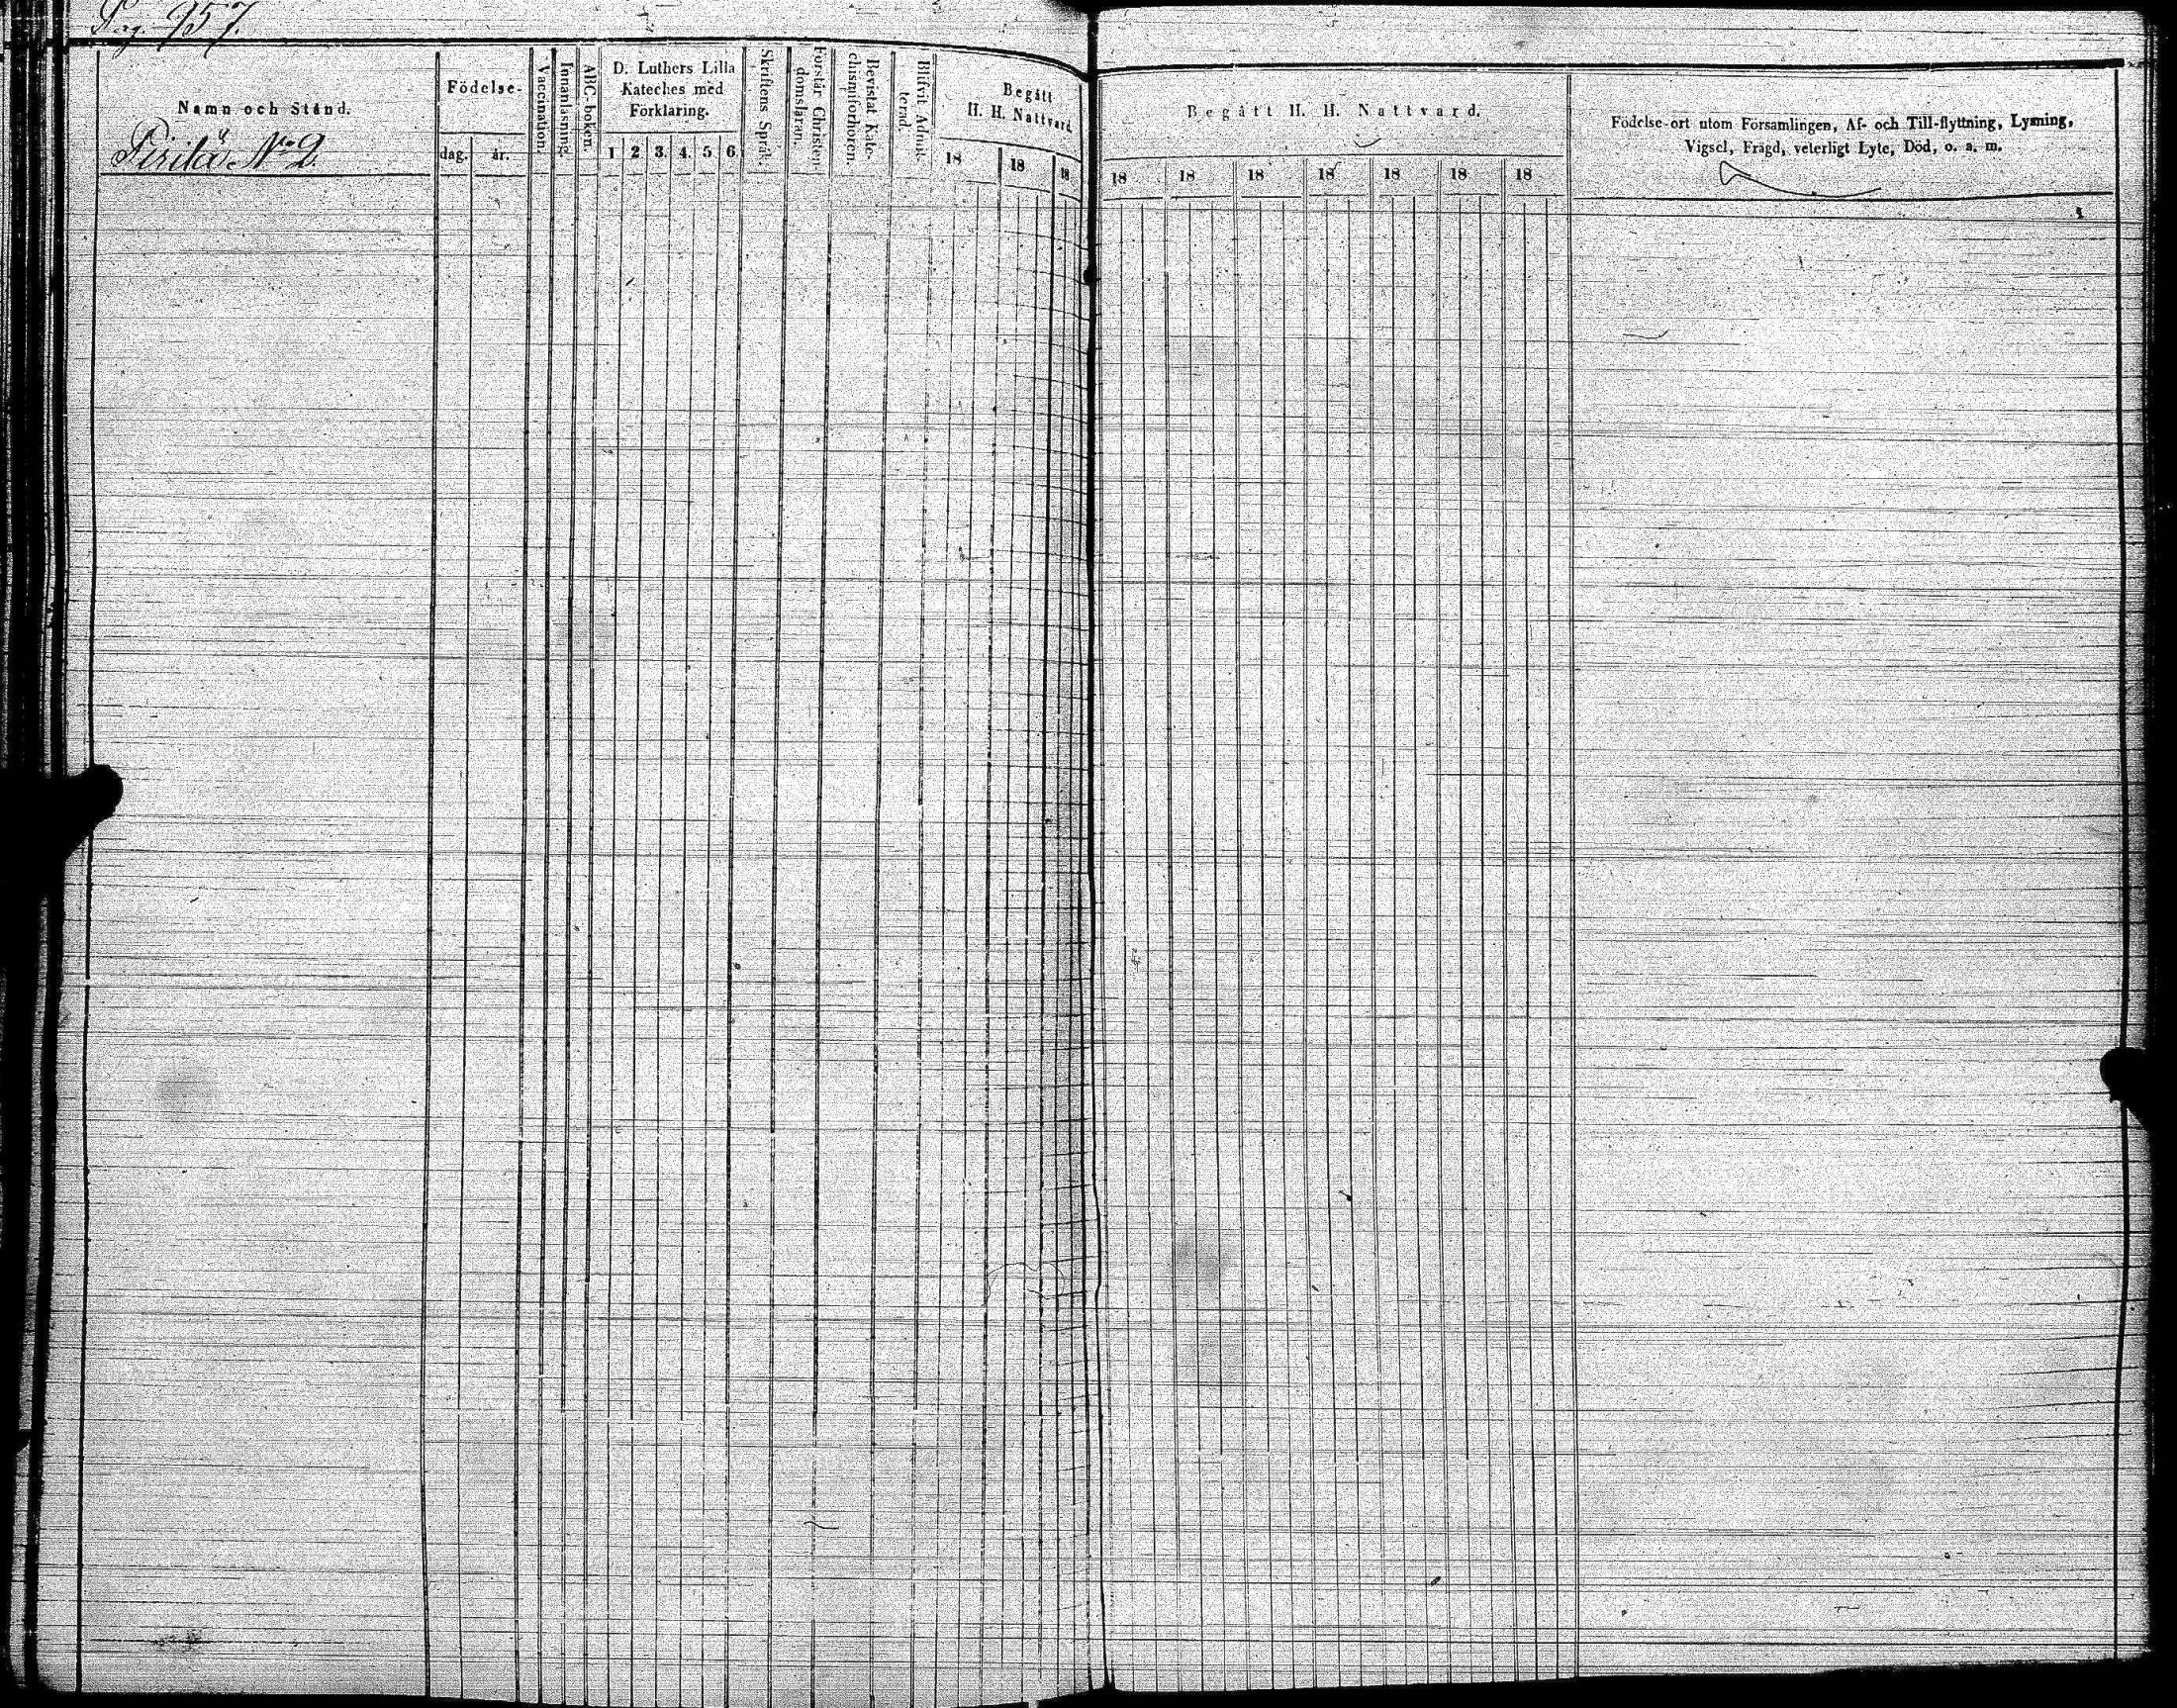 Pag. 157.
Namn och Stånd.
Pirilä No 2.
Födelse-
dag. år.
Vaccination.
Innanläsning.
ABC-boken.
D. Luthers Lilla
Kateches med
Förklaring.
1 2 3. 4. 5 6
Skriftens Språk.
Förstår Christen-
domsläran.
Bevistat Kate-
chismiförhören.
Blifvit Admit-
terad.
Begått
H. H. Nattvard.
18 18 18
Begått H. H. Nattvard.
18 18 18 18 18 18 18
Födelse-ort utom Församlingen, Af- och Till-flyttning, Lysning,
Vigsel, Frägd, veterligt Lyte, Död, o. a. m.